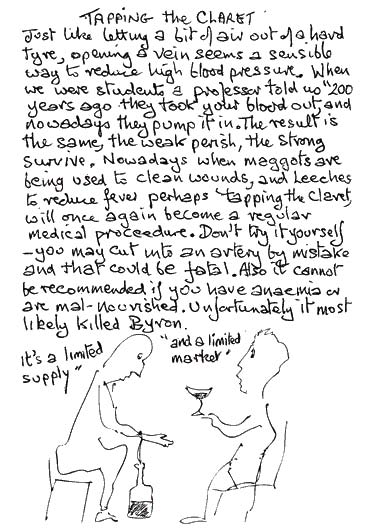 TAPPING the CLARET
Just like letting a bit of air out of a hard
tyre, opening a vein seems a sensible
way to reduce high blood pressure. When
we were students a professor told us "200
years ago they took your blood out, and
nowadays they pump it in. The result is
the same, the weak perish, the strong
survive. Nowadays when maggots are
being used to clean wounds, and Leeches
to reduce fever perhaps 'tapping the Claret,
will once again become a regular
medical proceedure. Don't try it yourself
- you may cut into an artery by mistake
and that could be fatal. Also it cannot
be recommended if you have anaemia or
are mal-nourished. Unfortunately it most
likely killed Byron.
it's a limited
supply"
"and a limited
market"